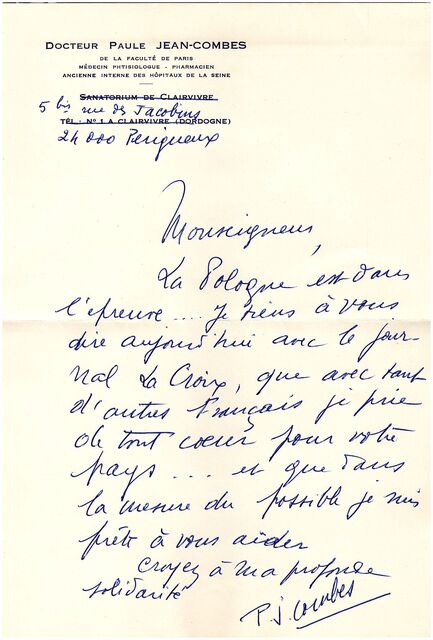 DOCTEUR PAULE JEAN-COMBES
DE LA FACULTÉ DE PARIS
MÉDECIN PHTISIOLOGUE - PHARMACIEN
ANCIENNE INTERNE DES HÔPITAUX DE LA SEINE
SANATORIUM DE CLAIRVIVRE
5 bis rue des Jacobins
TÉL. N° 1 A CLAIRVIVRE (DORDOGNE)
24000 Périgueux
Monseigneur,
La Pologne est dans
l'épreuve .... je tiens à vous
dire aujourd'hui avec le jour-
nal La Croix, que avec tant
d'autres Français je prie
de tout coeur pour votre
pays ... et que dans
la mesure du possible je suis
prête à vous aider
Croyez à ma profonde
solidarité
P. J. Combes